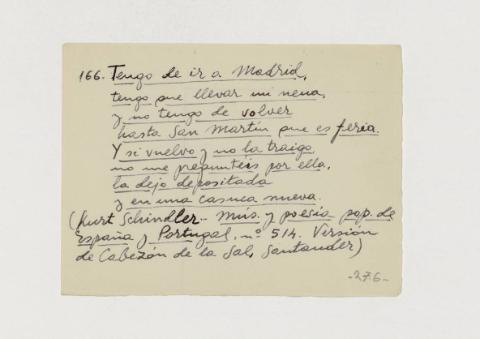 166. Tengo de ir a Madrid,
tengo que llevar mi nena,
y no tengo de volver
hasta San Martín que es feria.
Y si vuelvo y no la traigo
no me preguntéis por ella,
la dejo depositada
y en una casuca nueva.
(Kurt Schindler.- Mús. y poesía pop. de
España y Portugal, nº 514. Versión
de Cabezón de la Sal, Santander)
-276-